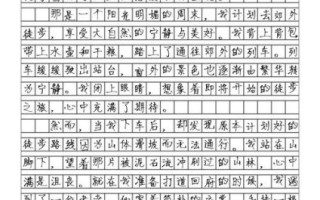 那是一个阳光明媚的周末，我计划去郊外
徒步，享受大自然的宁静与美好。我背上背包
带上水壶和干粮，踏上了通往郊外的列车。列
车缓缓驶出站台，窗外的景色也逐渐由繁华转
为宁静。我闭上眼睛，想象着即将开始的徒步
之旅，心中充满了期待。
然而，当我下车后，却发现原本计划好的
徒步路线因为山体滑坡而无法通行。我站在山
脚下，望着那片被泥石流冲刷过的山林，心中
满是沮丧。就在我准备打道回府的时候，我遇